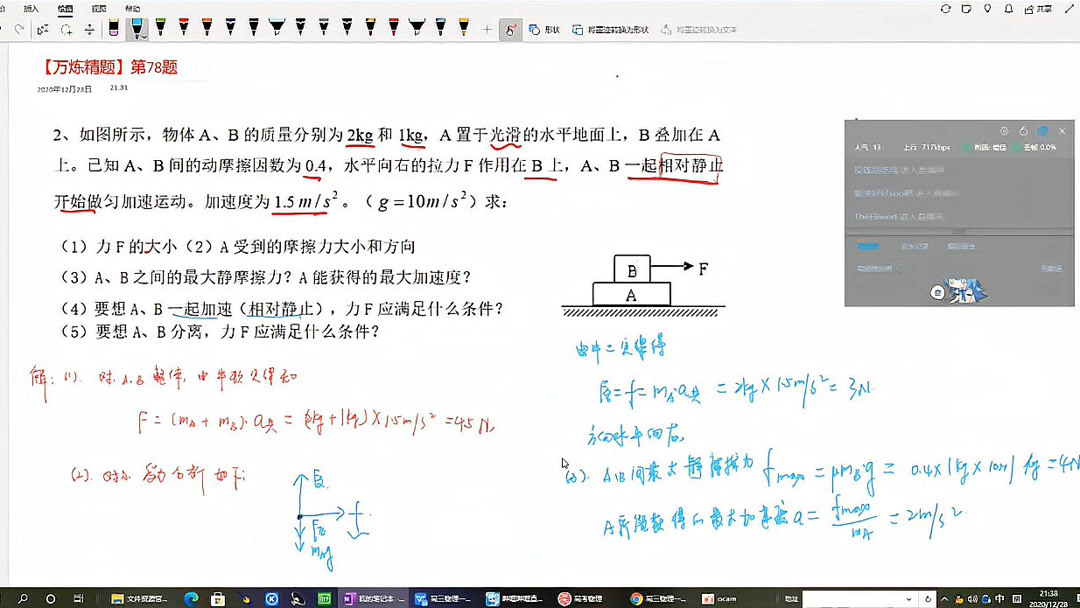 插入 绘图 视图 帮助
共享
形状 将墨迹转换为形状 将墨迹转换为文本
【万炼精题】第78题
2020年12月28日 21:31
2、如图所示，物体A、B的质量分别为2kg和1kg，A置于光滑的水平地面上，B叠加在A
上。已知A、B间的动摩擦因数为0.4，水平向右的拉力F作用在B上，A、B一起相对静止
开始做匀加速运动。加速度为1.5m/s²。（g=10m/s²）求：
（1）力F的大小（2）A受到的摩擦力大小和方向
（3）A、B之间的最大静摩擦力？A能获得的最大加速度？
（4）要想A、B一起加速（相对静止），力F应满足什么条件？
（5）要想A、B分离，力F应满足什么条件？
B F
A
人气 13 上行 717kbps 丢帧 0.0%
进入直播间
进入直播间
TheEliwend 进入直播间
解：(1). 对A.B整体，由牛二定律得
F=(mA+mB)·a共=(2kg+1kg)×1.5m/s²=4.5N,
(2). 对A 受力分析如下：
f
mAg
由牛二定律得
=f=mA·a共=2kg×1.5m/s²=3N.
方向水平向右。
(3). A.B间最大静摩擦力fmax=μmBg=0.4×1kg×10N/kg=4N
A所能获得的最大加速度a=fmax/mA=2m/s².
文件资源管... 我的笔记本 - ... 高三物理一... 哔哩哔哩直... 高考物理 高三物理一... ocam 地址 中
21:38
2020/12/28